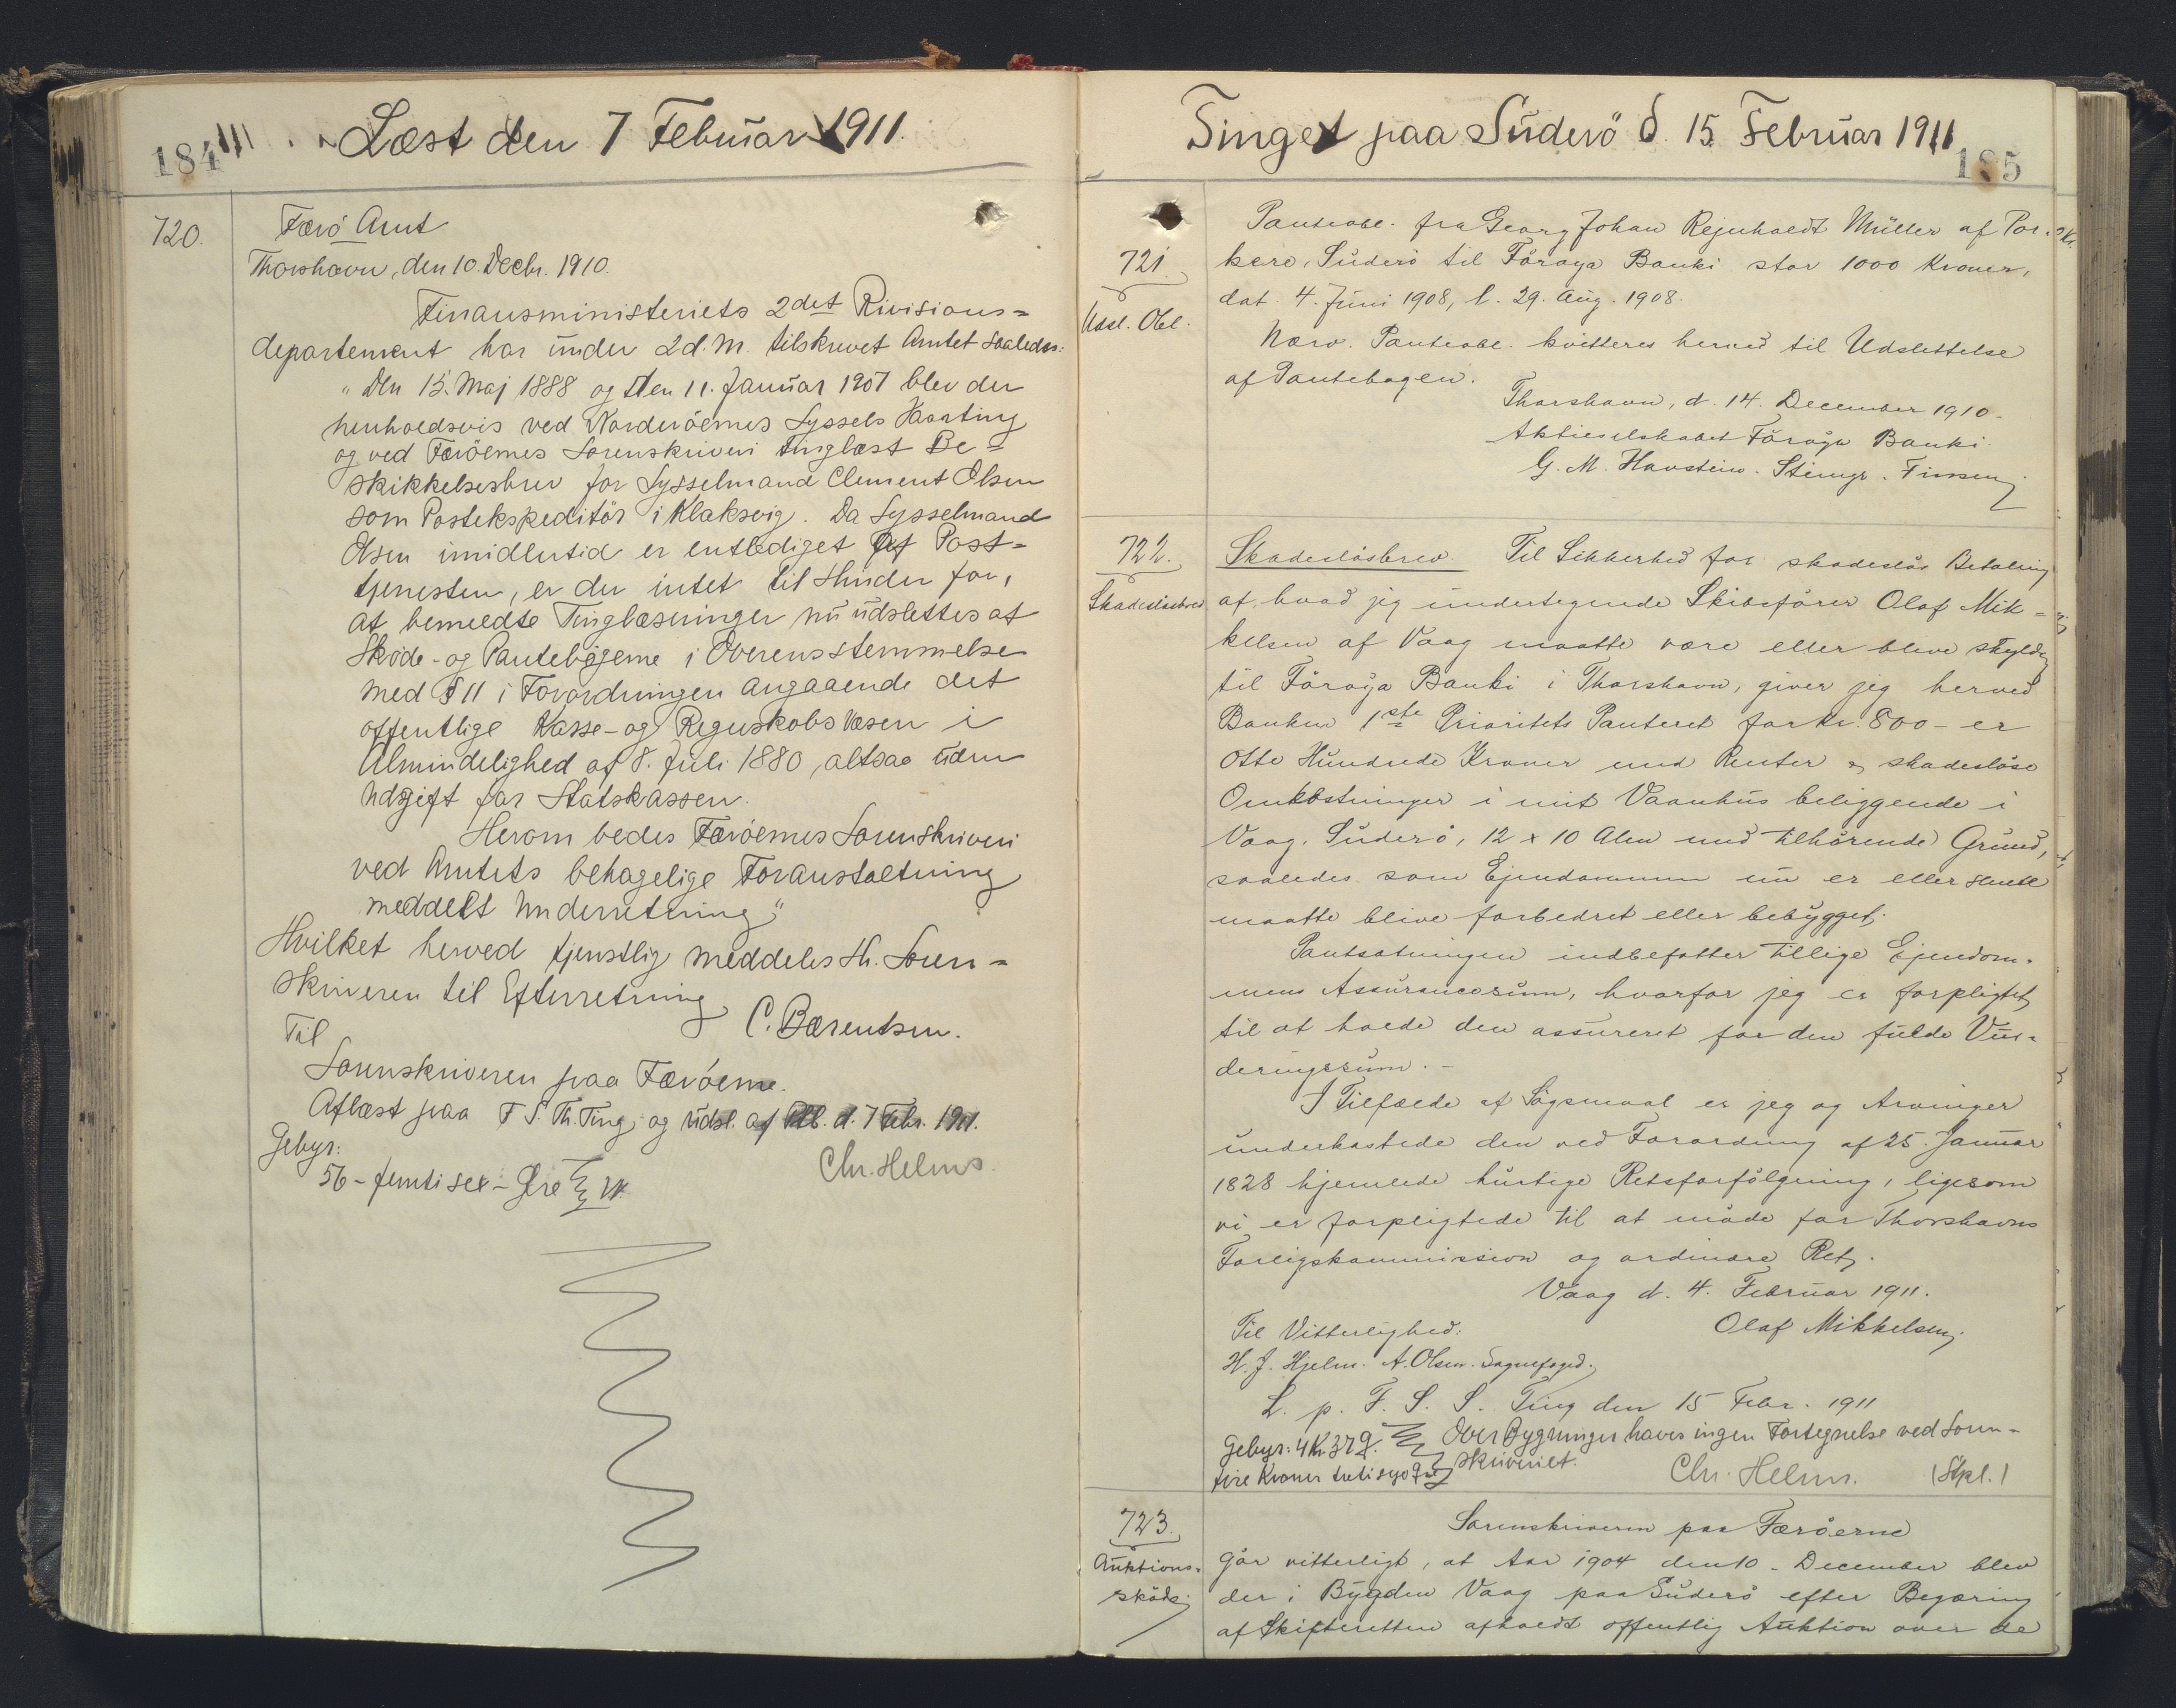 184
Læst den 7 Februar 1911.
720.
Færö Amt
Thorshavn, den 10. Decbr. 1910.
Finansministeriets 2det Rivisions=
departement har under 2 d. M. tilskrevet Amtet saaledes:
"Den 15. Maj 1888 og den 11. Januar 1907 blev der
henholdsvis ved Norderöernes Syssels Vaarting
og ved Færöernes Sorenskriveri tinglæst Be=
skikkelsesbrev for Sysselmand Clement Olsen
som Postekspeditör i Klaksvig. Da Sysselmand
Olsen imidlertid er entlediget af Post=
tjenesten, er der intet til Hinder for,
at bemeldte Tinglæsninger nu udslettes af
Sköde- og Pantebögerne i Overensstemmelse
med § 11 i Forordningen angaaende det
offentlige Kasse- og Regnskabs Væsen i
Almindelighed af 8. Juli 1880, altsaa uden
Udgift for Statskassen.
Herom bedes Færöernes Sorenskriveri
ved Amtets behagelige Foranstaltning
meddelt Underretning"
Hvilket herved tjenstlig meddeles Hr. Soren=
skriveren til Efterretning
C. Bærentsen.
Til
Sorenskriveren paa Færöerne.
Aflæst paa F. S. Th. Ting og udsl. af Ptb. d. 7 Febr. 1911.
Gebyr:
56 - femti sex - Øre
Chr. Helms.
Tinget paa Suderö d. 15. Februar 1911
185
721.
Udsl. Obl.
Panteobl. fra Georg Johan Rejnholdt Müller af Por-
kere, Suderö til Föroya Banki stor 1000 Kroner,
dat. 4. Juni 1908, l. 29. Aug. 1908.
Nærv. Panteobl. kvitteres herved til Udslettelse
af Pantebogen.
Thorshavn, d. 14. December 1910.
Aktieselskabet Föroya Banki
G. M. Havstein. Stingr. Finsen
722.
Skadeslösbrev
Skadeslösbrev. Til Sikkerhed for skadeslös Betaling
af, hvad jeg undertegnede Skibsförer Olaf Mik=
kelsen af Vaag maatte være eller blive skyldig
til Föroya Banki i Thorshavn, giver jeg herved
Banken 1ste Prioritets Panteret for Kr. 800 - er
Otte Hundrede Kroner med Renter og skadeslöse
Omkostninger i mit Vaanhus beliggende i
Vaag, Suderö, 12 x 10 Alen med tilhörende Grund,
saaledes som Ejendommen nu er eller
maatte blive forbedret eller bebygget.
Pantsætningen indbefatter tillige Ejendom-
mens Assurancesum, hvorfor jeg er forpligtet
til at holde den assureret for den fulde Vur-
deringssum. -
I Tilfælde af Sögsmaal er jeg og Arvinger
underkastede den ved Forordning af 25. Januar
1828 hjemlede hurtige Retsforfölgning, ligesom
vi er forpligtede til at möde for Thorshavns
Forligskommission og ordinære Ret.
Vaag d. 4. Februar 1911.
Olaf Mikkelsen
Til Vitterlighed:
H. J. Hjelm. A. Olsen. Sognefoged.
L. p. F. S. S. Ting den 15 Febr. 1911
Gebyr: 4 Kr. 37 Ø. Over Bygninger haves ingen Fortegnelse ved Soren-
fire Kroner tretisyv Øre skriveriet.
Chr. Helms. (Stpl.)
723.
Auktions-
sköde
Sorenskriveren paa Færöerne
Gör vitterligt, at Aar 1904 den 10. December blev
der i Bygden Vaag paa Suderö efter Begæring
af Skifteretten afholdt offentlig Auktion over de